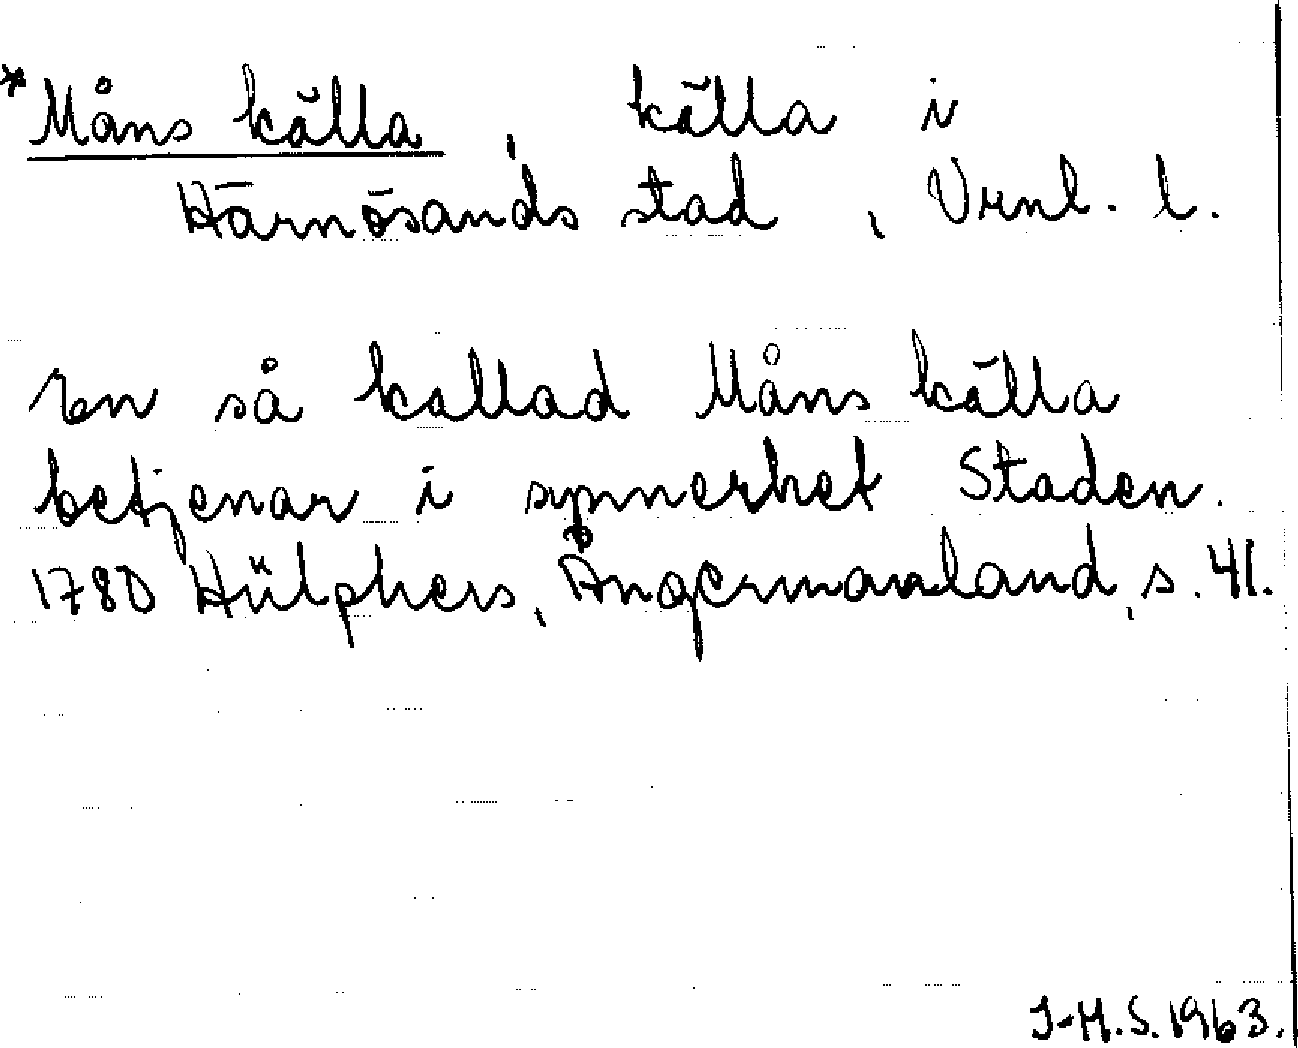 *Måns källa, källa i
Härnösands stad, Vrnl. l.
en så kallad Måns källa
betjenar i synnerhet Staden.
1780 Hülphers, Ångermanland, s. 41.
J-H.S. 1963.